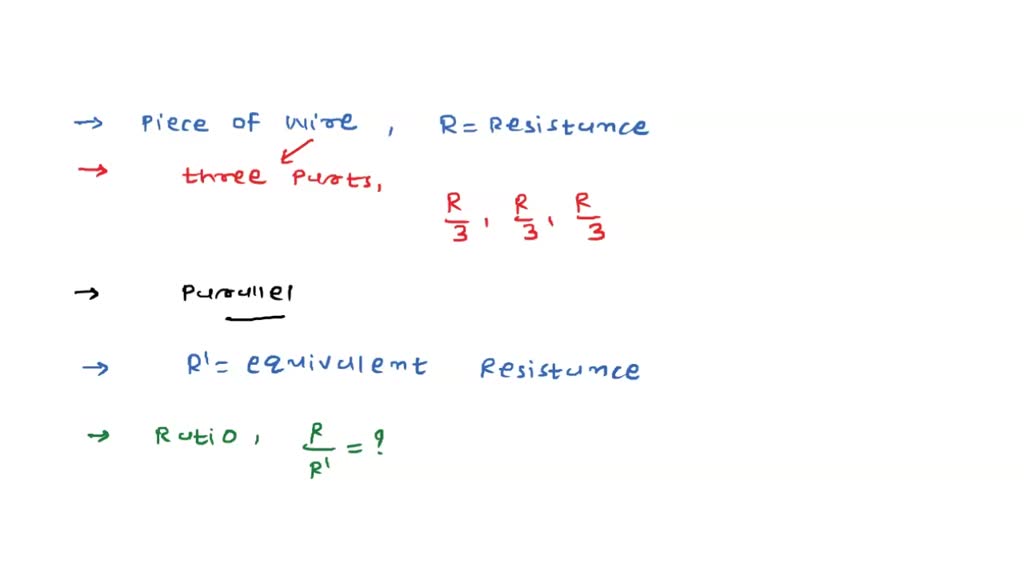 → Piece of wire, R = Resistance
→ three Parts,
R/3, R/3, R/3
→ Parallel
→ R' = equivalent Resistance
→ Ratio, R/R' = ?